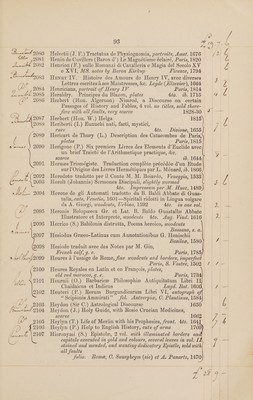 93
2080 Helvetii (J. F.) Tractatus de Physiognomia, portraits. Amst. 1676
2081 Henin de Cuvillers (Baron d') Le Magnetisme éclairé. Paris, 1820
2082 Henrion (F.) sulle Romanzi di Cavalleria e Magia del Secolo XV
e XVI, MS. notes by Baron Kirkup Firenze, 1794
2083 Henry IV. Histoire des Amours de Henry IV, avec diverses
Lettres escrites à ses Maistresses, hr. Leyde (Elzevier), 1664
2084 Henriciana, portrait of Henry IV Paris, 1814
2085 Heraldry. Principes du Blazon, plates 4to. ib. 1715
2086 Herbert (Hon. Algernon) Nimrod, a Discourse on certain
Passages of History and Fables, 4 vol. no titles, sold there-
fore with all faults, very scarce 1828-30
2087 Herbert (Hon. W.) Helga 1815
2088 Herculani (L.) Bassani nati, fasti, mystici,
rare 4to. Divione, 1655
2089 Hericart de Thury (L.) Description des Catacombes de Paris,
plates Paris, 1815
2090 Herigone (P.) Six premiers Livres des Elements d'Euclide avec
un brief Traicté de l'Arithmetique practique, &c.
scarce ib. 1644
2091 Hermes Trismégiste. Traduction complète précédée d'un Etude
sur l'Origine des Livres Hermétiques par L. Ménard, ib. 1866
2092 Herodoto tradotto per il Conte M. M. Boiardo, Venegia, 1533
2093 Herolt (Johannis) Sermones Discipuli, slightly wormed
4to. Impressum per M. Huss, 1492
2094 Herone de gli Automati tradotto da B. Baldi Abbate di Guas-
talla, cuts, Venetia, 1601—Spiritali ridotti in Lingua volgare
da A. Giorgi, woodcuts, Urbino, 1592 4to. in one vol.
2095 Heronis Belopoeeca Gr. et Lat. B. Baldo Guastallæ Abbate
Illustratore et Interprete, woodcuts 4to. Aug. Vind. 1616
2096 Herrico (S.) Babilonia distrutta, Poema heroico, woodcuts
Bassano, s. a.
2097 Hesiodus Græco-Latinus cum Annotationibus G. Henischii
Basileæ, 1580
2098 Hesiode traduit avec des Notes par M. Gin,
French calf, g. e. Paris, 1785
2099 Heures à l'usage de Rome, fine woodcuts and borders, imperfect
Paris, S. Vostre, 1502
2100 Heures Royales en Latin et en François, plates,
old red morocco, g. e. Paris, 1734
2101 Heurnii (O.) Barbaricæ Philosophiæ Antiquitatum Libri II
Chaldaicus et Indicus Lugd. Bat. 1600
2102 Heuteri (P.) Rerum Burgundicarum Libri VI, autograph of
"Scipionis Ammirati" fol. Antverpiæ, C. Plantinus, 1584
2103 Heydon (Sir C.) Astrological Discourse 1650
2104 Heydon (J.) Holy Guide, with Rosie Crucian Medicines,
scarce 1662
2105 Heylin (T.) Life of Merlin with his Prophecies, front. 4to. 1641
2106 Heylyn (P.) Help to English History, cuts of arms 1709
2107 Hieronymi (S.) Epistolæ, 2 vol. with illuminated borders and
capitals executed in gold and colours, several leaves in vol. II.
stained and mended, and wanting dedicatory Epistle, sold with
all faults
folio. Romæ, C. Sweynheym (sic) et A. Panartz, 1470